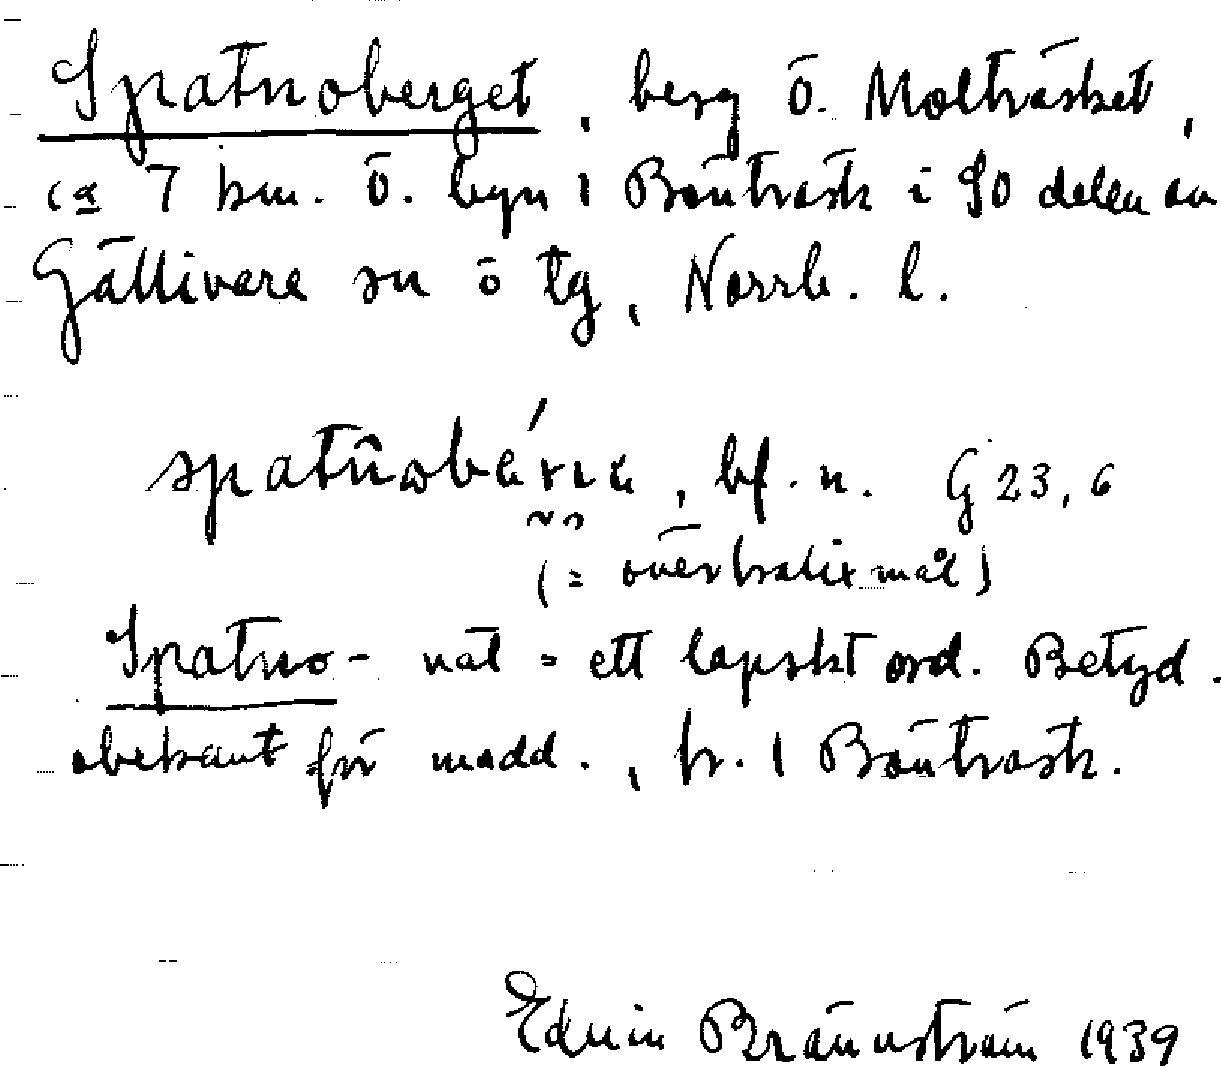 Spatnoberget, berg ö. Molträsket,
ca 7 km. ö. byn 1 Bönträsk i SO delen av
Gällivare sn ö tg, Norrb. l.
bf. n. G 23, 6
(= överkalixmål)
Spatno- nåt = ett lapskt ord. Betyd.
obekant för medd., fr. 1 Bönträsk.
Edvin Brännström 1939